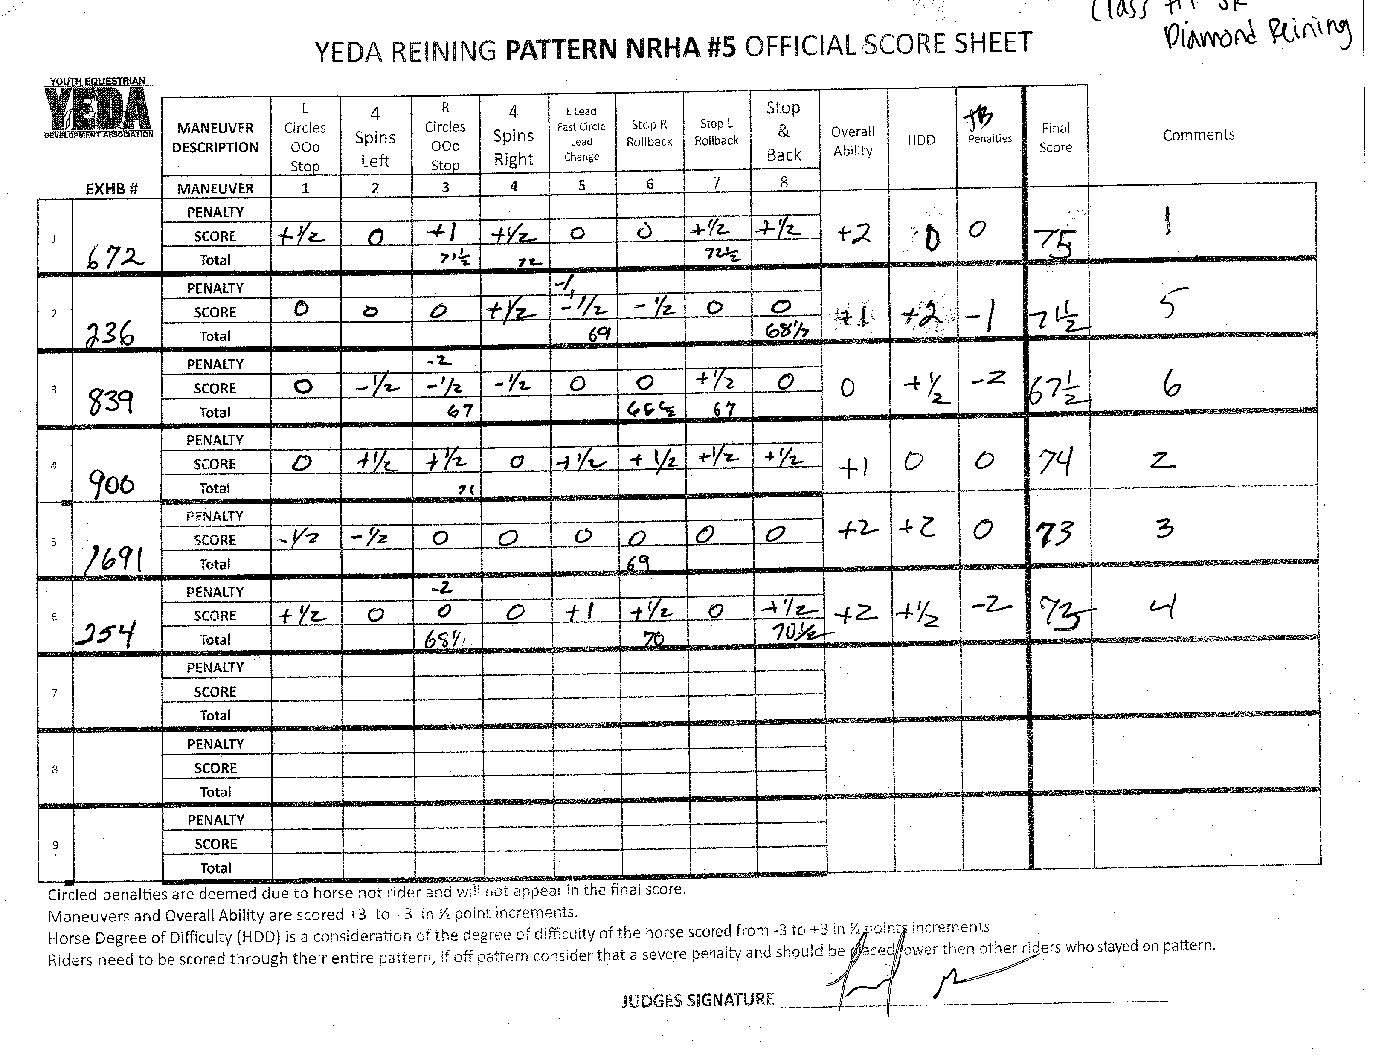 Class #1 JR
Diamond Reining
YEDA REINING PATTERN NRHA #5 OFFICIAL SCORE SHEET
YOUTH EQUESTRIAN
YEDA
DEVELOPMENT ASSOCIATION
EXHB # MANEUVER DESCRIPTION L Circles OOo Stop 4 Spins Left R Circles OOo Stop 4 Spins Right L Lead Fast Circle Lead Change Stop R Rollback Stop L Rollback Stop & Back Overall Ability HDD Penalties Final Score Comments
MANEUVER 1 2 3 4 5 6 7 8
1 672 PENALTY
SCORE +1/2 0 +1 +1/2 0 0 +1/2 +1/2 +2 0 0 75 1
Total 71½ 72 72½
2 236 PENALTY -1
SCORE 0 0 0 +1/2 -1/2 -1/2 0 0 +1 +2 -1 71½ 5
Total 69 68½
3 839 PENALTY -2
SCORE 0 -1/2 -1/2 -1/2 0 0 +1/2 0 0 +½ -2 67½ 6
Total 67 66½ 67
4 900 PENALTY
SCORE 0 +1/2 +1/2 0 +1/2 +1/2 +1/2 +1/2 +1 0 0 74 2
Total 71
5 1691 PENALTY
SCORE -1/2 -1/2 0 0 0 0 0 0 +2 +2 0 73 3
Total 69
6 254 PENALTY -2
SCORE +1/2 0 0 0 +1 +1/2 0 +1/2 +2 +½ -2 73 4
Total 68½ 70 70½
7 PENALTY
SCORE
Total
8 PENALTY
SCORE
Total
9 PENALTY
SCORE
Total
Circled penalties are deemed due to horse not rider and will not appear in the final score.
Maneuvers and Overall Ability are scored +3 to -3 in ½ point increments.
Horse Degree of Difficulty (HDD) is a consideration of the degree of difficulty of the horse scored from -3 to +3 in ½ points increments
Riders need to be scored through their entire pattern, if off pattern consider that a severe penalty and should be placed lower then other riders who stayed on pattern.
JUDGES SIGNATURE